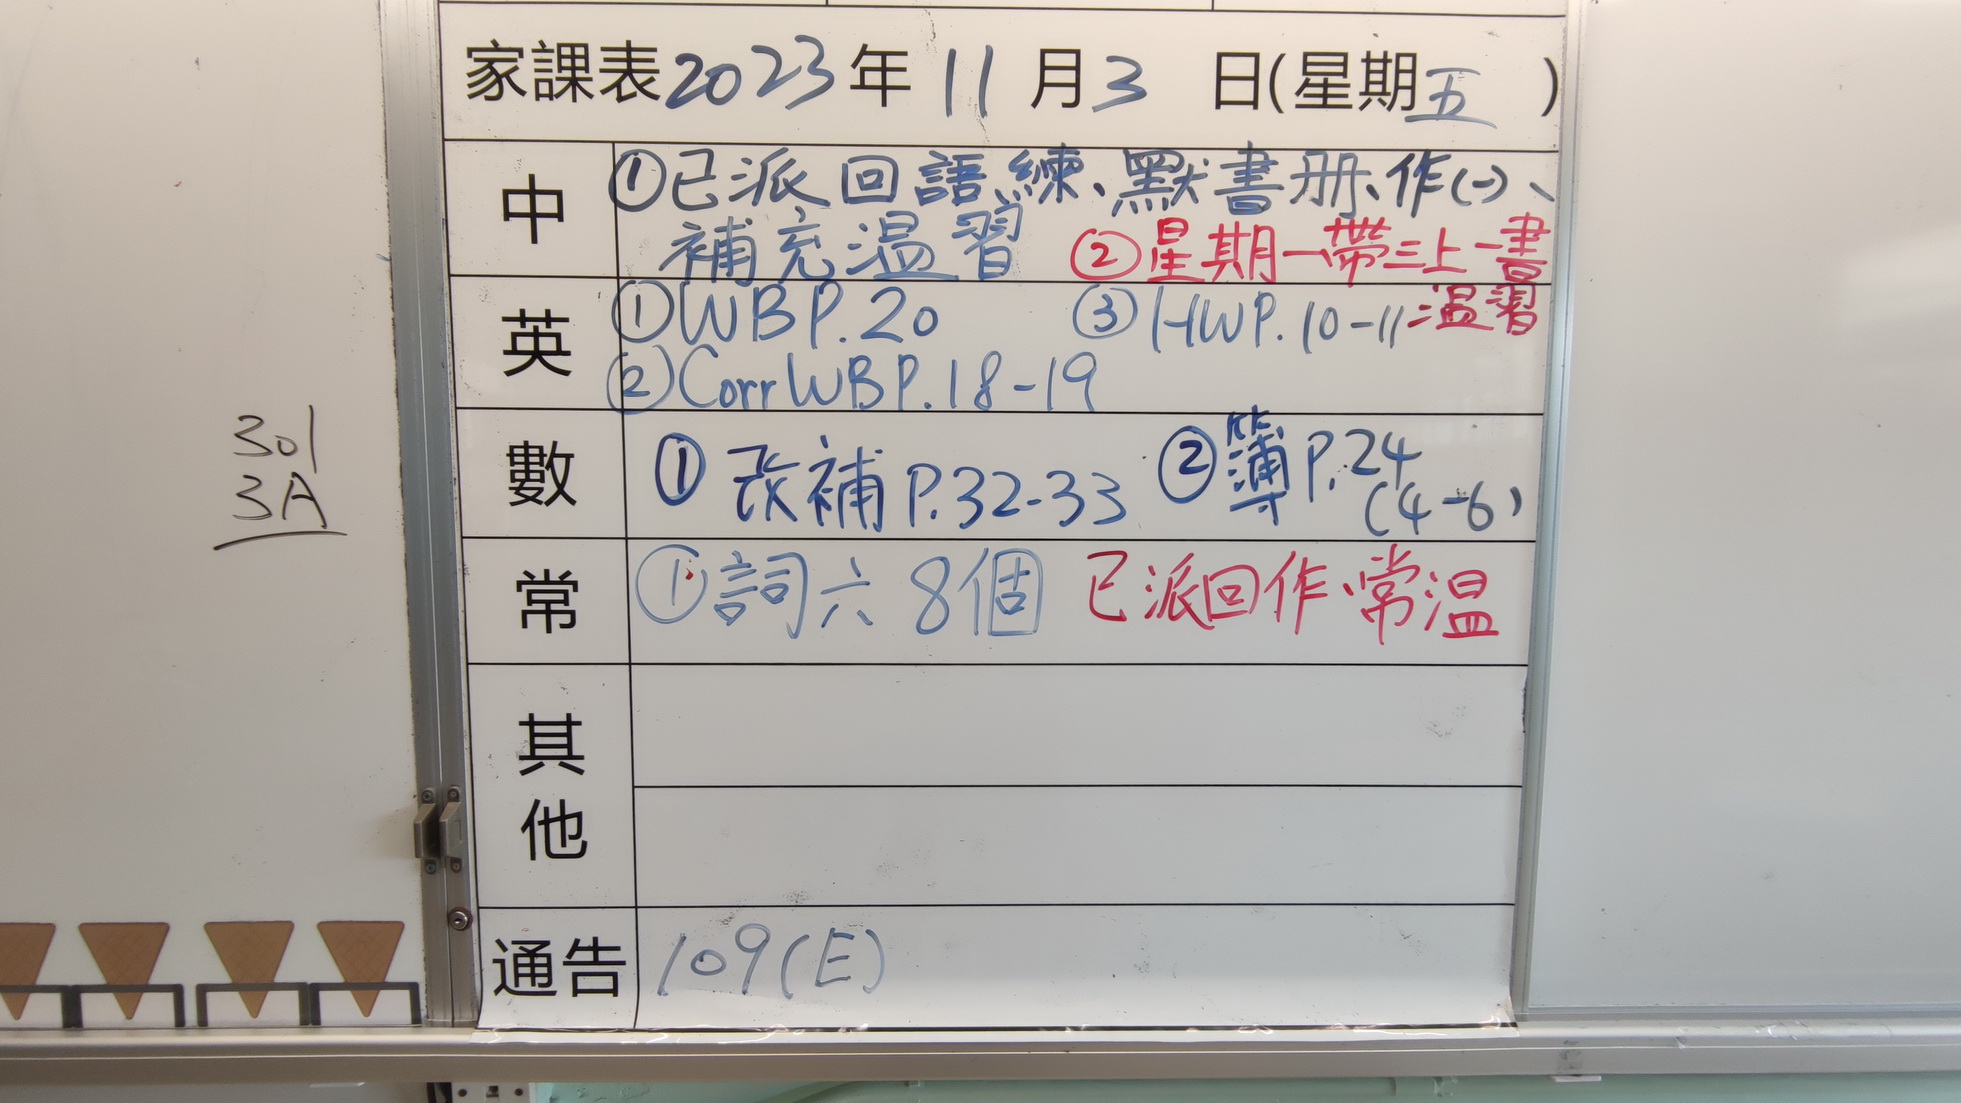 家課表2023年11月3日(星期五)
中
①已派回語練、默書册、作(一)、
補充温習 ②星期一帶三上一書
温習
英
①WBP.20 ③HWP.10-11
②Corr WBP.18-19
數
①改補P.32-33 ②簿P.24
(4-6)
常
①詞六 8個 已派回作、常温
其他
通告
109(E)
301
3A